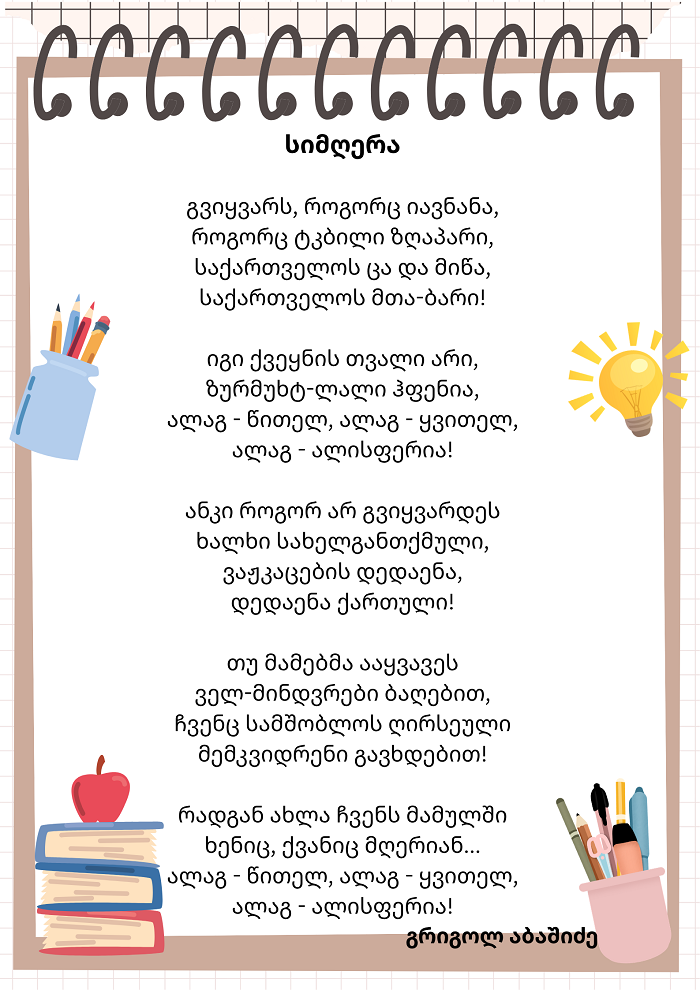 სიმღერა
გვიყვარს, როგორც იავნანა,
როგორც ტკბილი ზღაპარი,
საქართველოს ცა და მიწა,
საქართველოს მთა-ბარი!
იგი ქვეყნის თვალი არი,
ზურმუხტ-ლალი ჰფენია,
ალაგ - წითელ, ალაგ - ყვითელ,
ალაგ - ალისფერია!
ანკი როგორ არ გვიყვარდეს
ხალხი სახელგანთქმული,
ვაჟკაცების დედაენა,
დედაენა ქართული!
თუ მამებმა ააყვავეს
ველ-მინდვრები ბაღებით,
ჩვენც სამშობლოს ღირსეული
მემკვიდრენი გავხდებით!
რადგან ახლა ჩვენს მამულში
ხენიც, ქვანიც მღერიან...
ალაგ - წითელ, ალაგ - ყვითელ,
ალაგ - ალისფერია!
გრიგოლ აბაშიძე